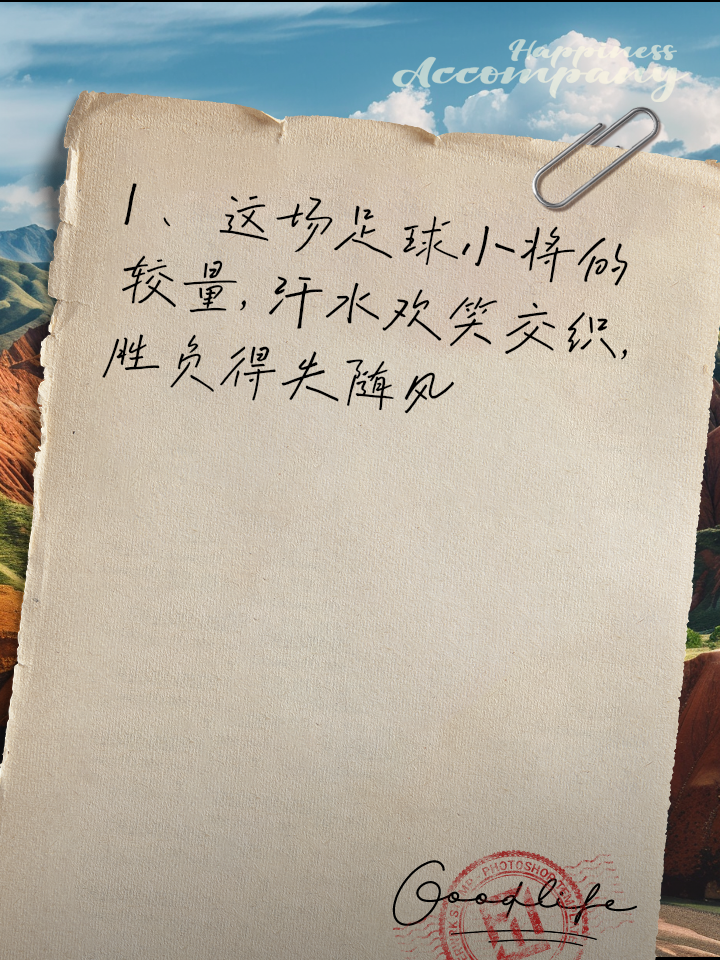 Happiness
Accompany
1、这场足球小将的
较量,汗水欢笑交织,
胜负得失随风
Goodlife